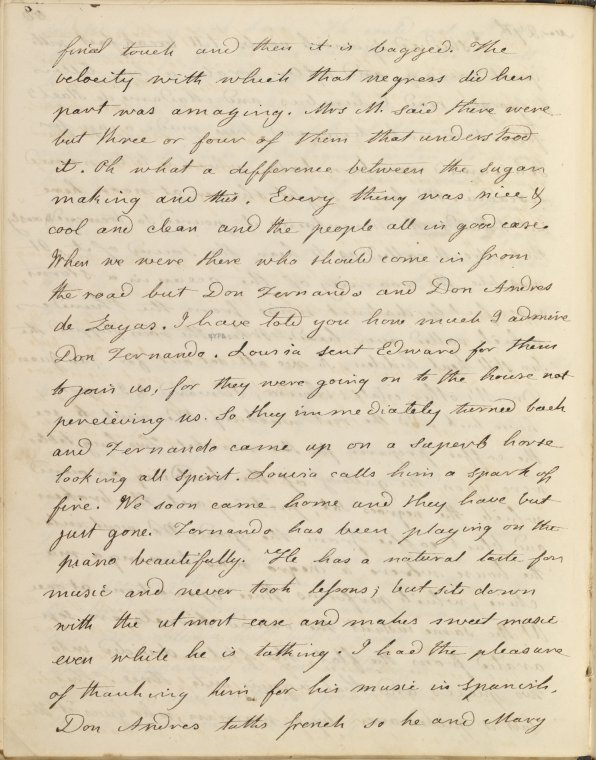 final touch and then it is bagged. The
velocity with which that negress did her
part was amazing. Mrs M. said there were
but three or four of them that understood
it. Oh what a difference between the sugar
making and this. Every thing was nice &
cool and clean and the people all in good case.
When we were there who should come in from
the road but Don Fernando and Don Andres
de Zayas. I have told you how much I admire
Don Fernando. Louisa sent Edward for them
to join us, for they were going on to the house not
perceiving us. So they immediately turned back
and Fernando came up on a superb horse
looking all spirit. Louisa calls him a spark of
fire. We soon came home and they have but
just gone. Fernando has been playing on the
piano beautifully. He has a natural taste for
music and never took lessons; but sits down
with the utmost ease and makes sweet music
even while he is talking. I had the pleasure
of thanking him for his music in Spanish.
Don Andres talks french so he and Mary